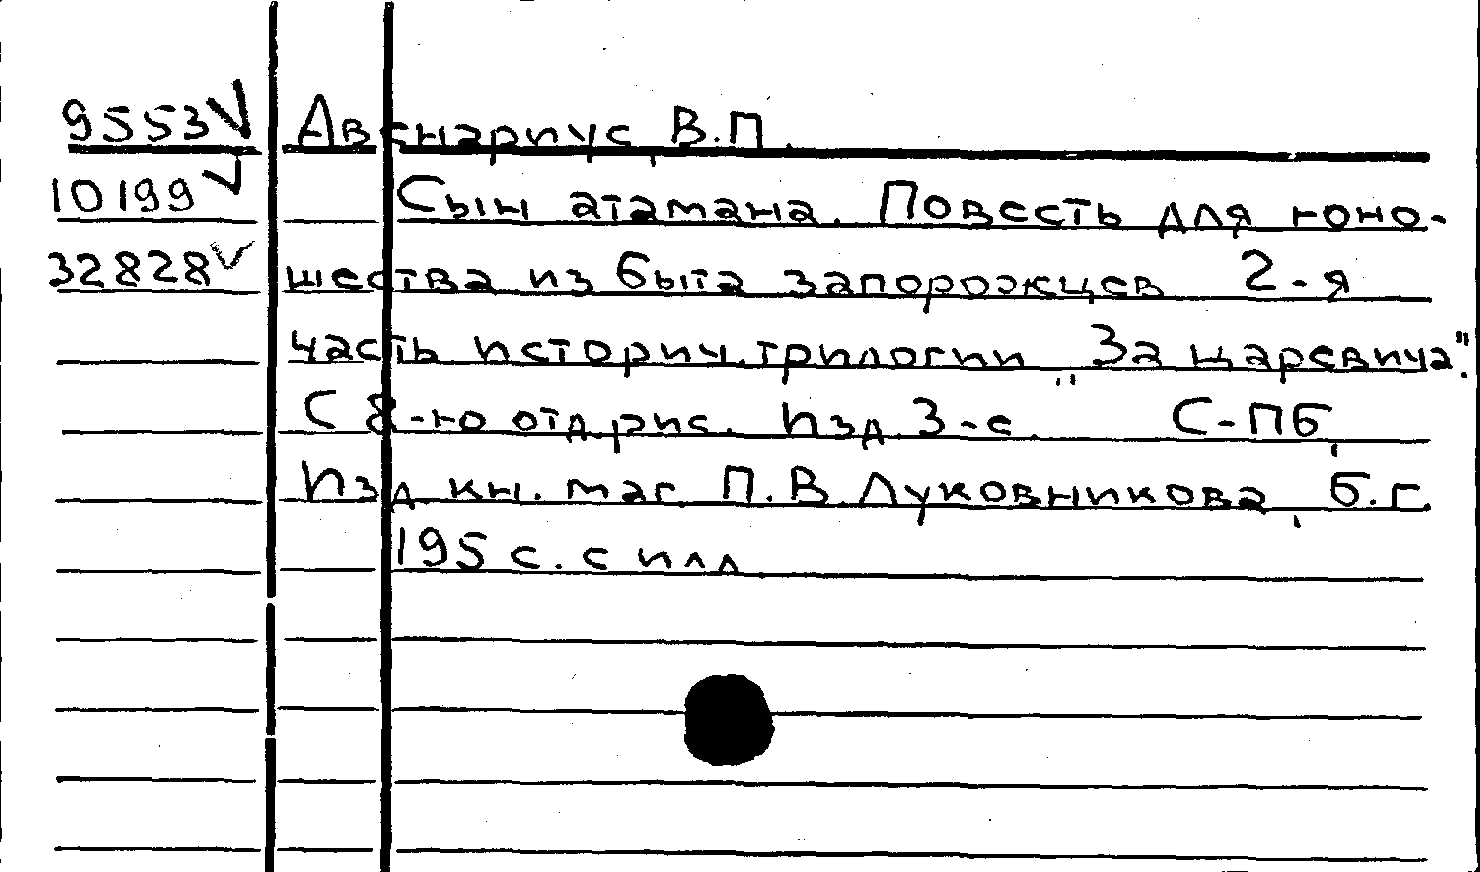 9553 √ Авенариус, В.П.
10199 √ Сын атамана. Повесть для юно-
32828 √ шества из быта запорожцев 2-я
часть историч. трилогии „За царевича".
С 8-ю отд. рис. Изд. 3-е. С-ПБ,
Изд. кн. маг. П.В. Луковникова, б.г.
195 с. с илл.